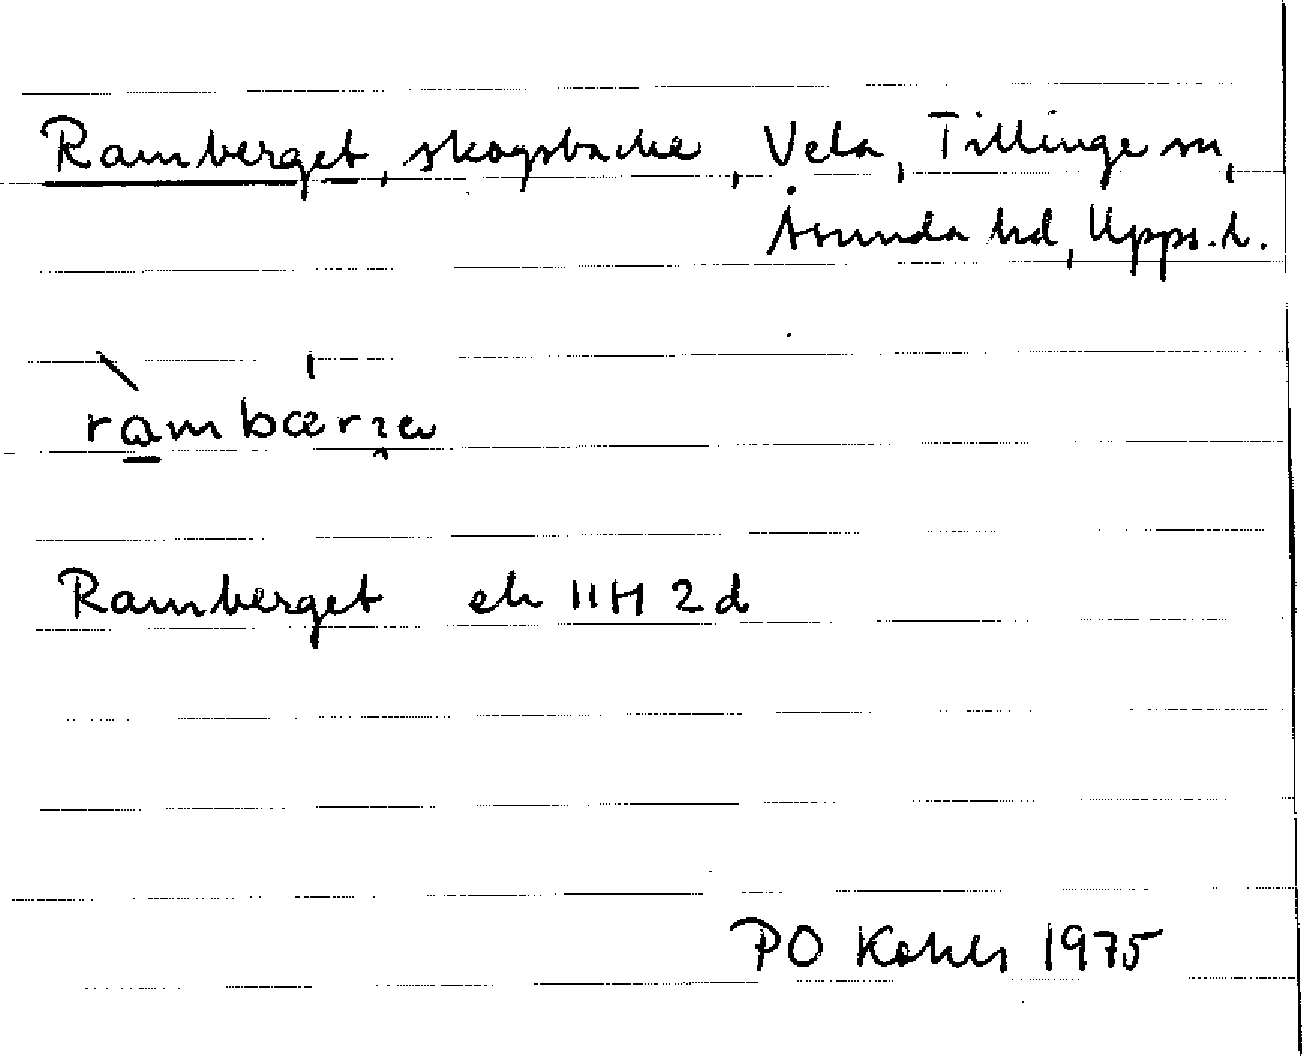 Ramberget, skogsbacke, Vela, Tillinge sn,
Åsunda hd, Upps. l.
Ramberget ek 11H 2d
PO Kohls 1975